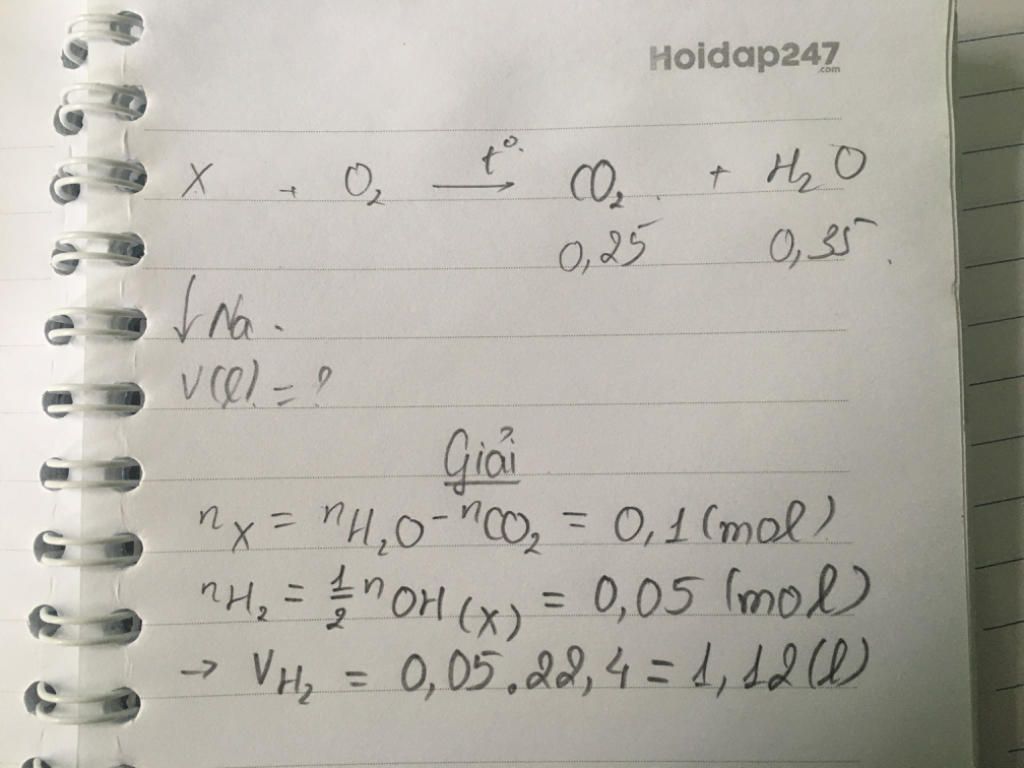 Hoidap247
.com
X + O₂ —t°→ CO₂ + H₂O
0,25 0,35
↓ Na.
V(l) = ?
Giải
nX = nH₂O - nCO₂ = 0,1 (mol)
nH₂ = 1/2 nOH(X) = 0,05 (mol)
→ VH₂ = 0,05.22,4 = 1,12 (l)